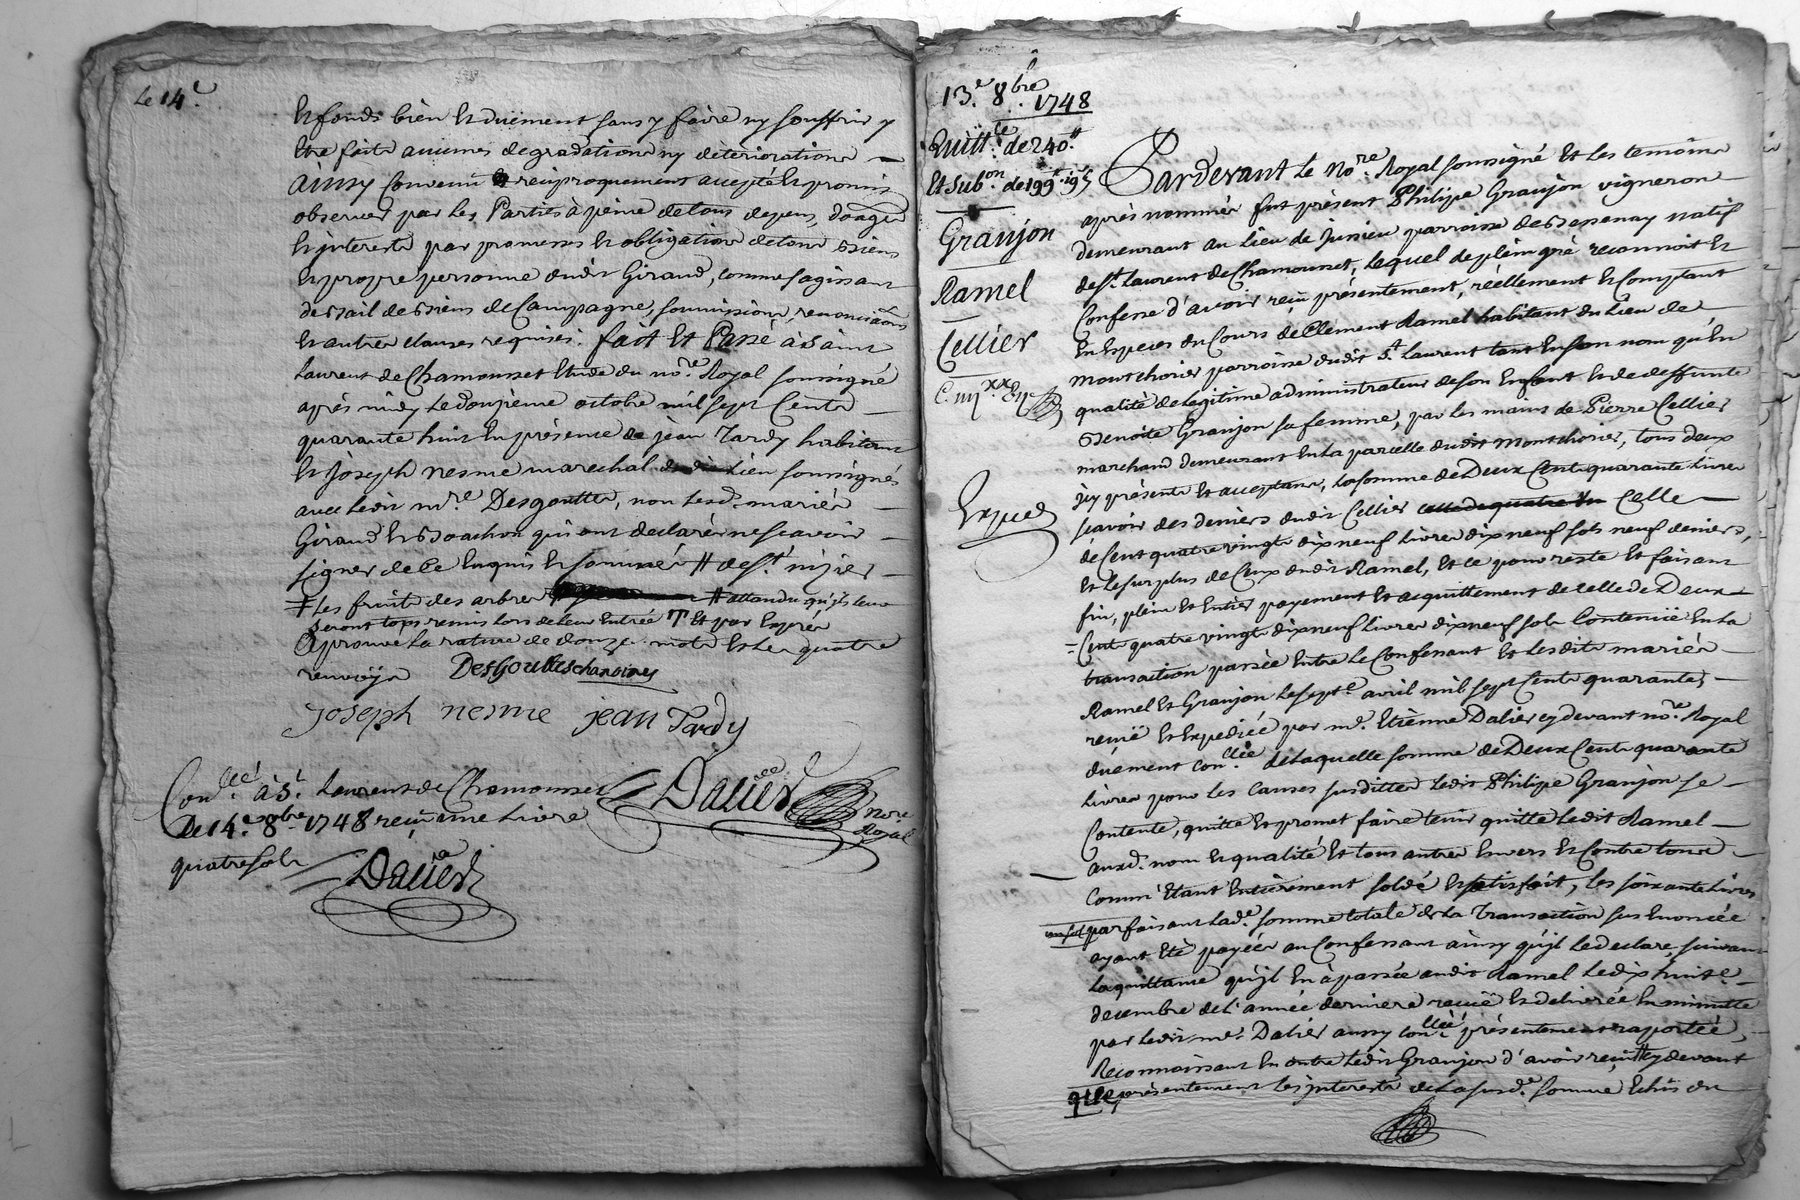 Le 14.e
et fonds bien et duëment sans y faire ny souffrir y
être faite aucunes degradations ny deteriorations
ainsy convenu et reciproquement accepté et promis
observer par les Parties à peine de tous depens, domages
et interests par promesses et obligation de tous biens
et propre personne dudit Giraud, comme s'agissant
de bail de biens de Campagne, soumissions, renonciaons
et autres clauses requises. fait et Passé à Saint
Laurent de Chamousset Etude du no.re Royal soussigné
après midy le douzieme octobre mil sept Cents
quarante huit En présence de jean Tardy habitant
et Joseph nesme marechal dudit Lieu soussignés
avec ledit m.re Desgouttes, non lesd. mariés
Giraud et Boachon qui ont declarés ne scavoir
signer de ce Enquis et sommés # de s.t nizier
Les fruits des arbres # attandu qu'ils leur
seront tous remis lors de leur Entrée T Et par Exprès
aprouvé la rature de douze mots et les quatre
renvoys Desgouttes chanoines
joseph nesme jean Tardy
Con.llé à S.t Laurent de Chamousset
De 14.e 8.bre 1748 reçu une Livre
quatre sols
Dalier
Dalier no.re Royal
13.e 8.bre 1748
Quitt.ce de 240.tt
Et Sub.on de 199.tt 19.s
Granjon
Ramel
Cellier
Expiés
Pardevant Le No.re Royal soussigné Et Les temoins
après nommés fut présent Philipe Granjon vigneron
demeurant au Lieu de Junieu parroisse de Bessenay natif
de S.t Laurent de Chamousset, Lequel de plein gré reconnoit et
Confesse d'avoir reçu présentement, réellement et Comptant
En Especes du Cours de Clément Ramel habitant du Lieu de
Montchorier parroisse dudit S.t Laurent tant En son nom qu'En
qualité de legitime administrateur de son Enfant et de deffunte
Benoite Granjon sa femme, par les mains de Pierre Cellier
marchand demeurant En La parcelle dudit Montchorier, tous deux
jcy présents et acceptans, la somme de Deux Cents quarante Livres
scavoir des deniers dudit Cellier celle de quatre vin Celle
de Cent quatre vingts dix neuf Livres dix neuf sols neuf deniers,
et le surplus de Ceux dudit Ramel, et ce pour reste et faisant
fin, plein et Entier payement et acquittement de celle de Deux
Cents quatre vingts dix neuf Livres dix neuf sols Contenuë En La
transaction passée Entre le Confessant et lesdits mariés
Ramel et Granjon le sept.e avril mil sept Cents quarante,
reçuë et Expediée par m.e Etienne Dalier cy devant no.re Royal
duëment con.llée de laquelle somme de Deux Cents quarante
Livres pour les causes susdittes ledit Philipe Granjon se
Contente, quitte et promet faire tenir quitte ledit Ramel
auxd. nom et qualité et tous autres Envers et Contre tous
comm'Etant Entièrement soldé et satisfait, les soixante Livres
un sol parfaisant lad.e somme totale de la Transaction sus Enoncée
ayant Eté payées au Confessant ainsy qu'jl le declare, suivant
la quittance qu'jl En à passée audit Ramel le dix huit.e
decembre de l'année derniere reçuë et delivrée En minutte
par ledit m.e Dalier aussy con.llée présentement raportée,
Reconnoissant En outre ledit Granjon d'avoir reçu tt cy devant
que présentement les jnterests de la susd.e somme Echus du